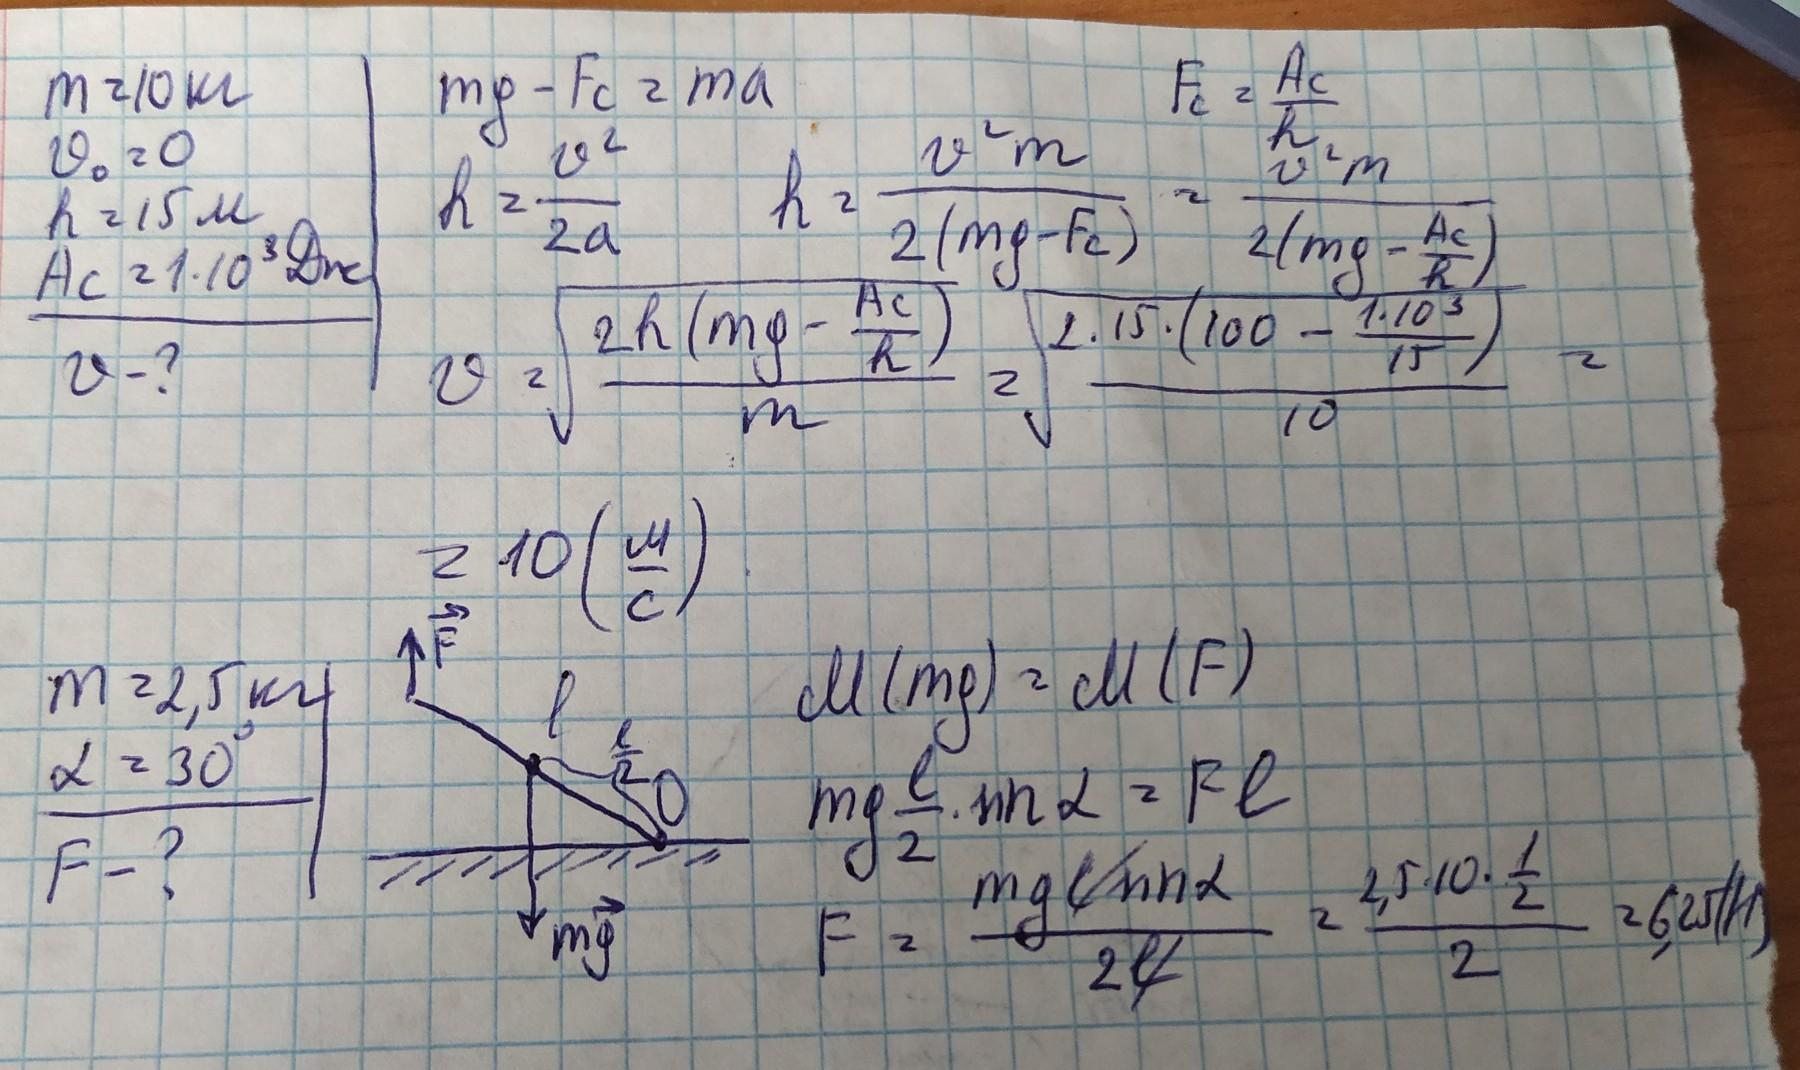 m = 10 кг
v₀ = 0
h = 15 м
Ac = 1·10³ Дж
v - ?
mg - Fc = ma
Fc = Ac/h
h = v²/2a
h = v²m/2(mg-Fc) = v²m/2(mg - Ac/h)
v = √(2h(mg - Ac/h)/m) = √(2·15·(100 - 1·10³/15)/10) =
= 10 (м/с)
m = 2,5 кг
α = 30°
F - ?
F⃗
l
l/2
O
mg⃗
M(mg) = M(F)
mg l/2 · sin α = Fl
F = mg l sin α/2l = 2,5·10·1/2/2 = 6,25 (Н)